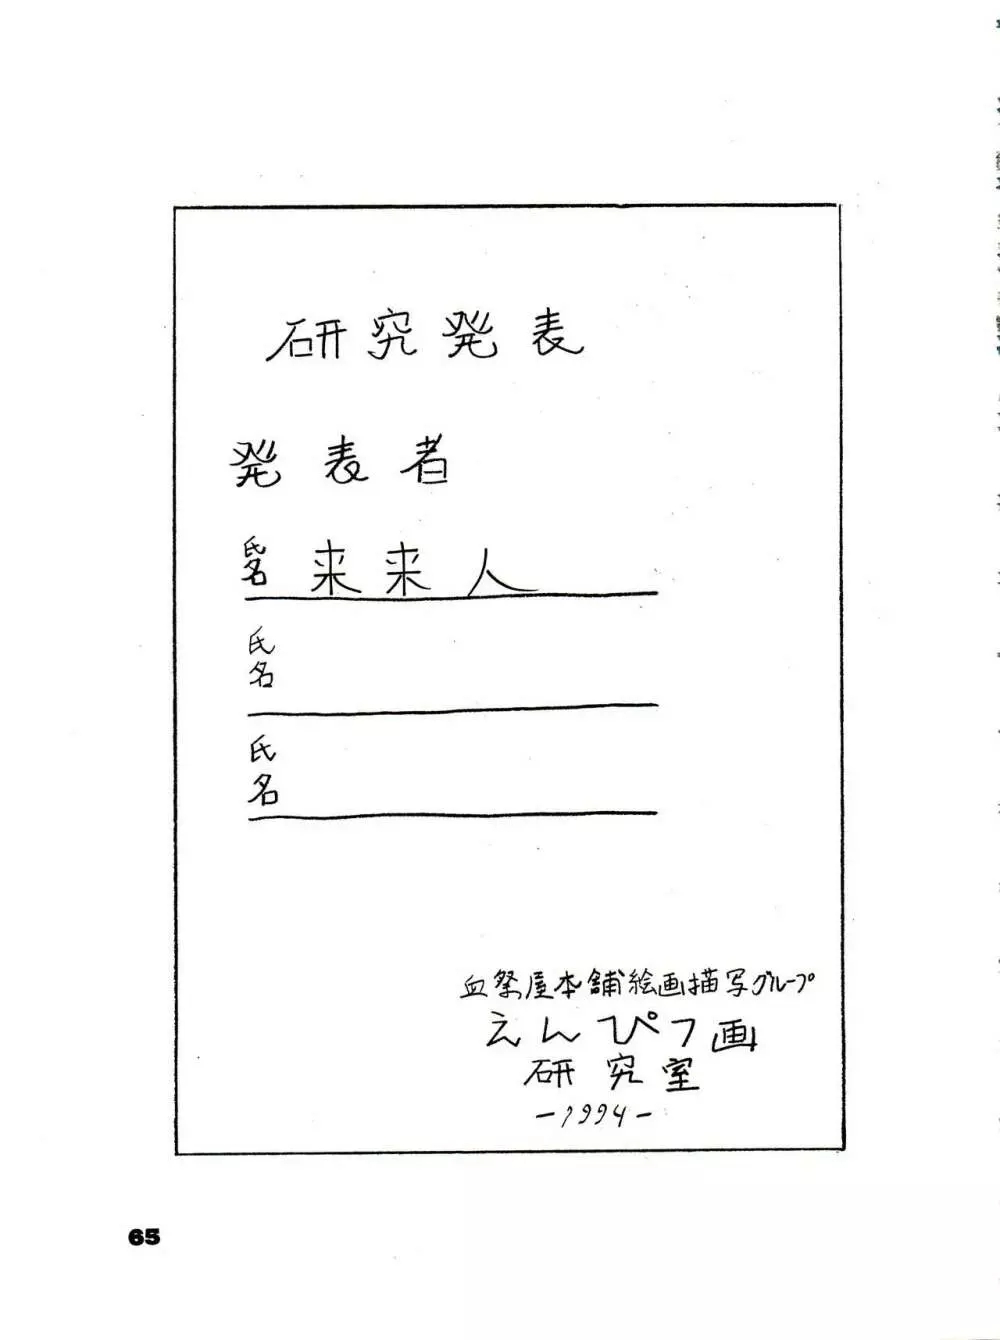 研究発表
発表者
氏名 来来人
氏名
氏名
血祭屋本舗絵画描写グループ
えんぴつ画
研究室
-1994-
65